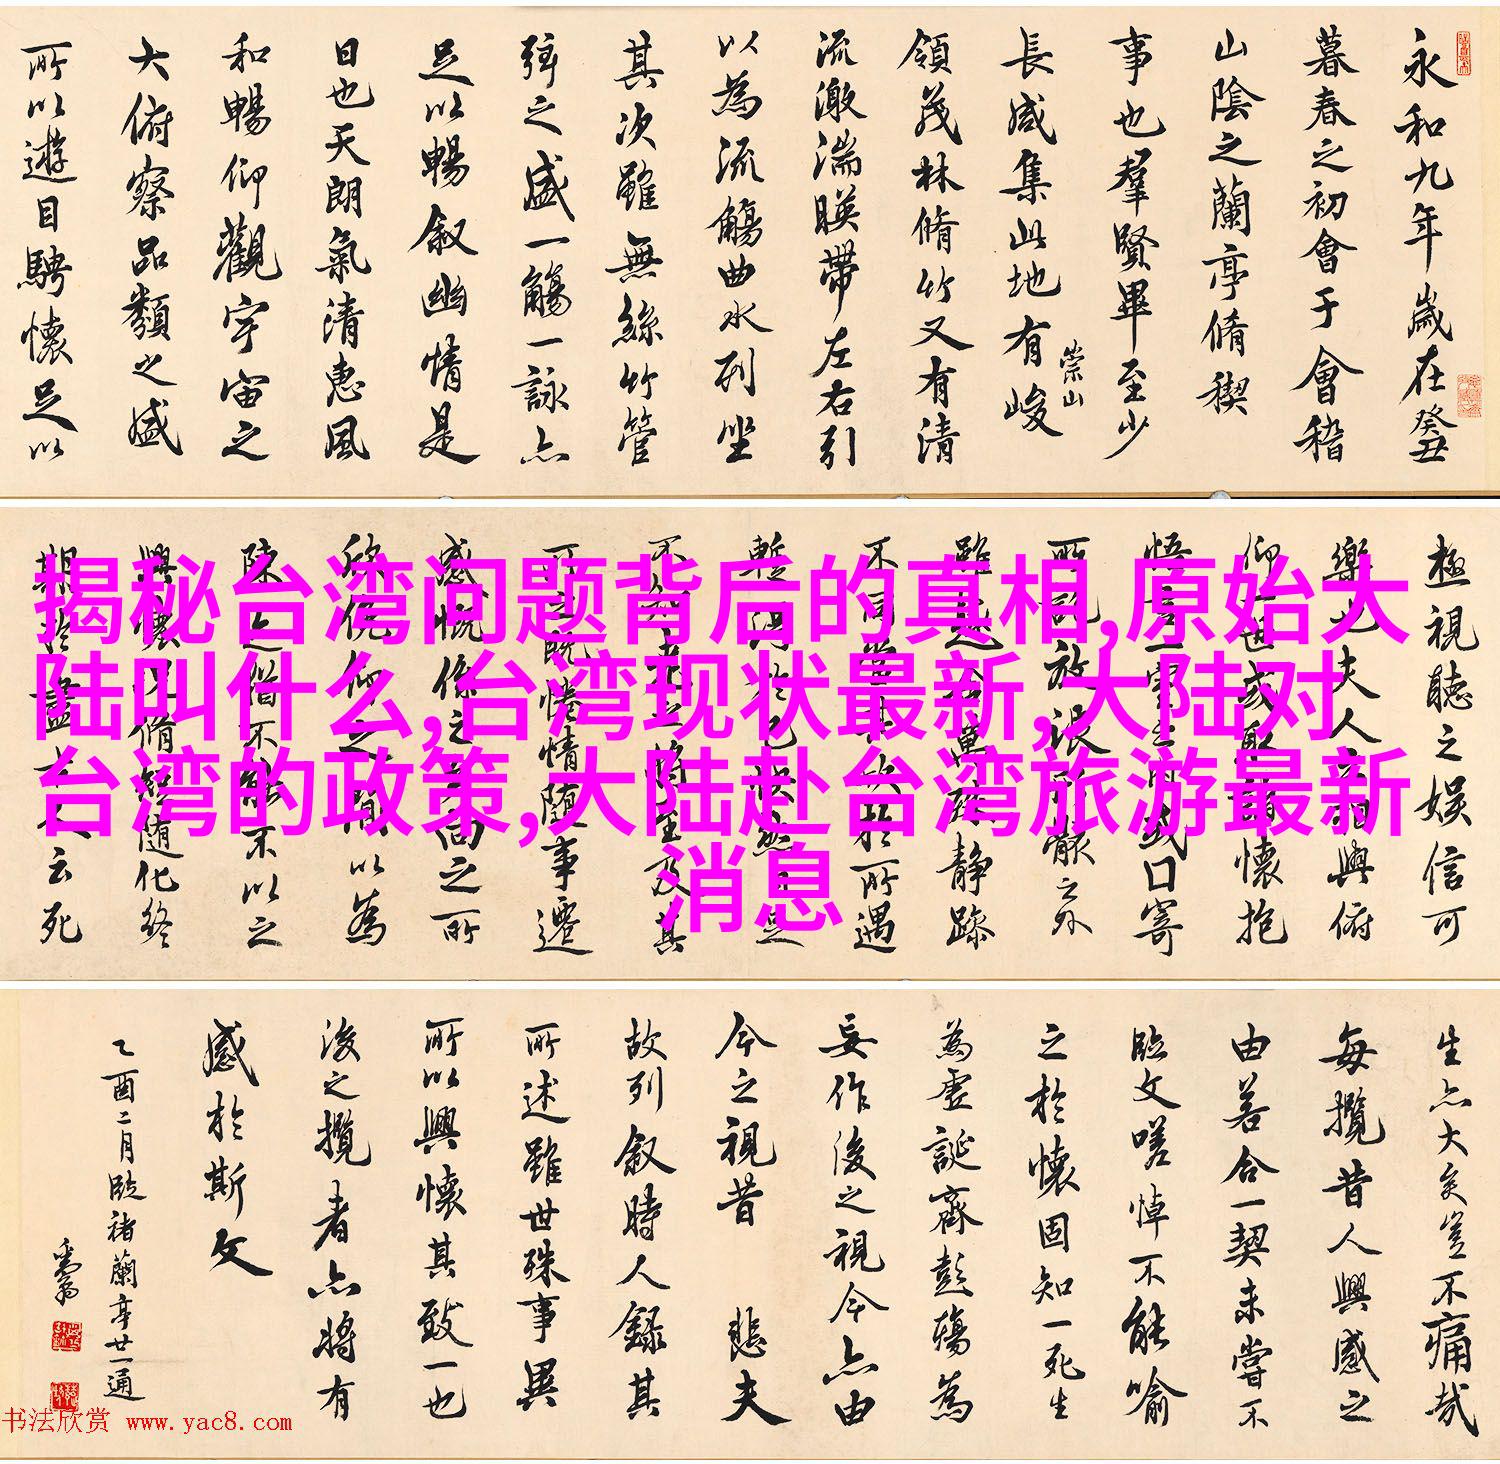 永和九年歲在癸丑
暮春之初會于會稽
山陰之蘭亭脩稧
事也羣賢畢至少
長咸集此地有峻
崇山
領茂林脩竹又有清
流激湍暎帶左右引
以為流觴曲水列坐
其次雖無絲竹管
弦之盛一觴一詠亦
足以暢叙幽情是
日也天朗氣清惠風
和暢仰觀宇宙之
大俯察品類之盛
所以遊目騁懷足以
極視聽之娛信可
樂也夫人之相與俯
仰一世或取諸懷抱
悟言一室之內或口寄
所託放浪形骸之外
雖趣舍萬殊靜躁
不同當其欣於所遇
暫得於己快然自足
不知老之將至及其
所之既惓情隨事遷
感慨係之矣向之所
欣俛仰之間以為
陳迹猶不能不以之
興懷況脩短隨化終
期於盡古人云死
揭秘台湾问题背后的真相,原始大
陆叫什么,台湾现状最新,大陆对
台湾的政策,大陆赴台湾旅游最新
消息
生亦大矣豈不痛哉
每攬昔人興感之
由若合一契未嘗不
臨文嗟悼不能喻
之於懷固知一死生
為虛誕齊彭殤為
妄作後之視今亦由
今之視昔 悲夫
故列叙時人錄其
所述雖世殊事異
所以興懷其致一也
後之攬者亦將有
感於斯文
乙酉二月臨褚蘭亭廿一通
书法欣赏 www.yac8.com